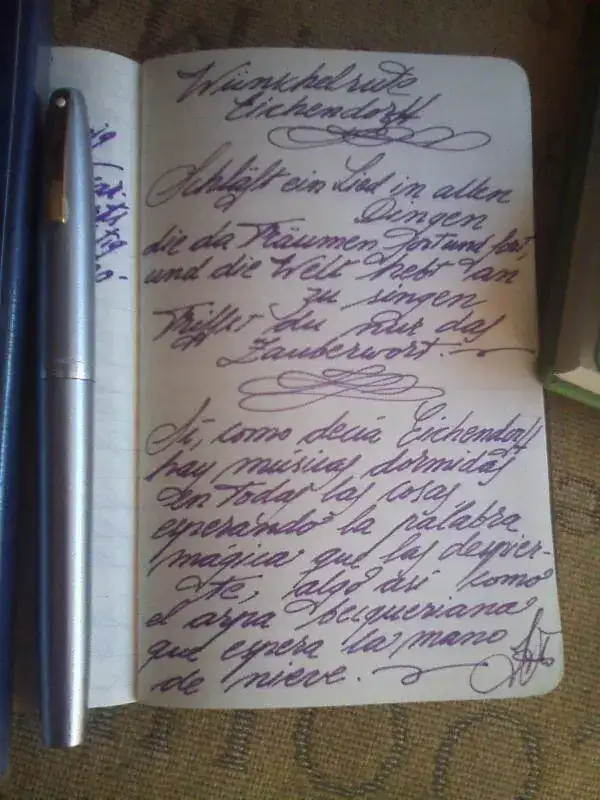 Wünschelrute
Eichendorff
Schläft ein Lied in allen
Dingen
die da Träumen fort und fort,
und die Welt hebt an
zu singen
Triffst du nur das
Zauberwort.
Sí, como decía Eichendorff
hay músicas dormidas
en todas las cosas
esperando la palabra
mágica que las despier-
te, algo así como
el arpa becqueriana
que espera la mano
de nieve.